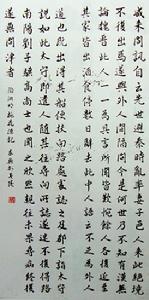 咸来問訊自云先世避秦時亂率妻子邑人来此絶境
不復出焉遂與外人間隔問今是何世乃不知有漢無
論魏晉此人一一為具言所聞皆歎惋餘人各復延至
其家皆出酒食停數日辭去此中人語云不足為外人
道也既出得其船便扶向路處處誌之及郡下詣太守
說如此太守即遣人隨其往尋向所誌遂迷不復得路
南陽劉子驥高尚士也聞之欣然規往未果尋病終後
遂無問津者
陶淵明桃花源記